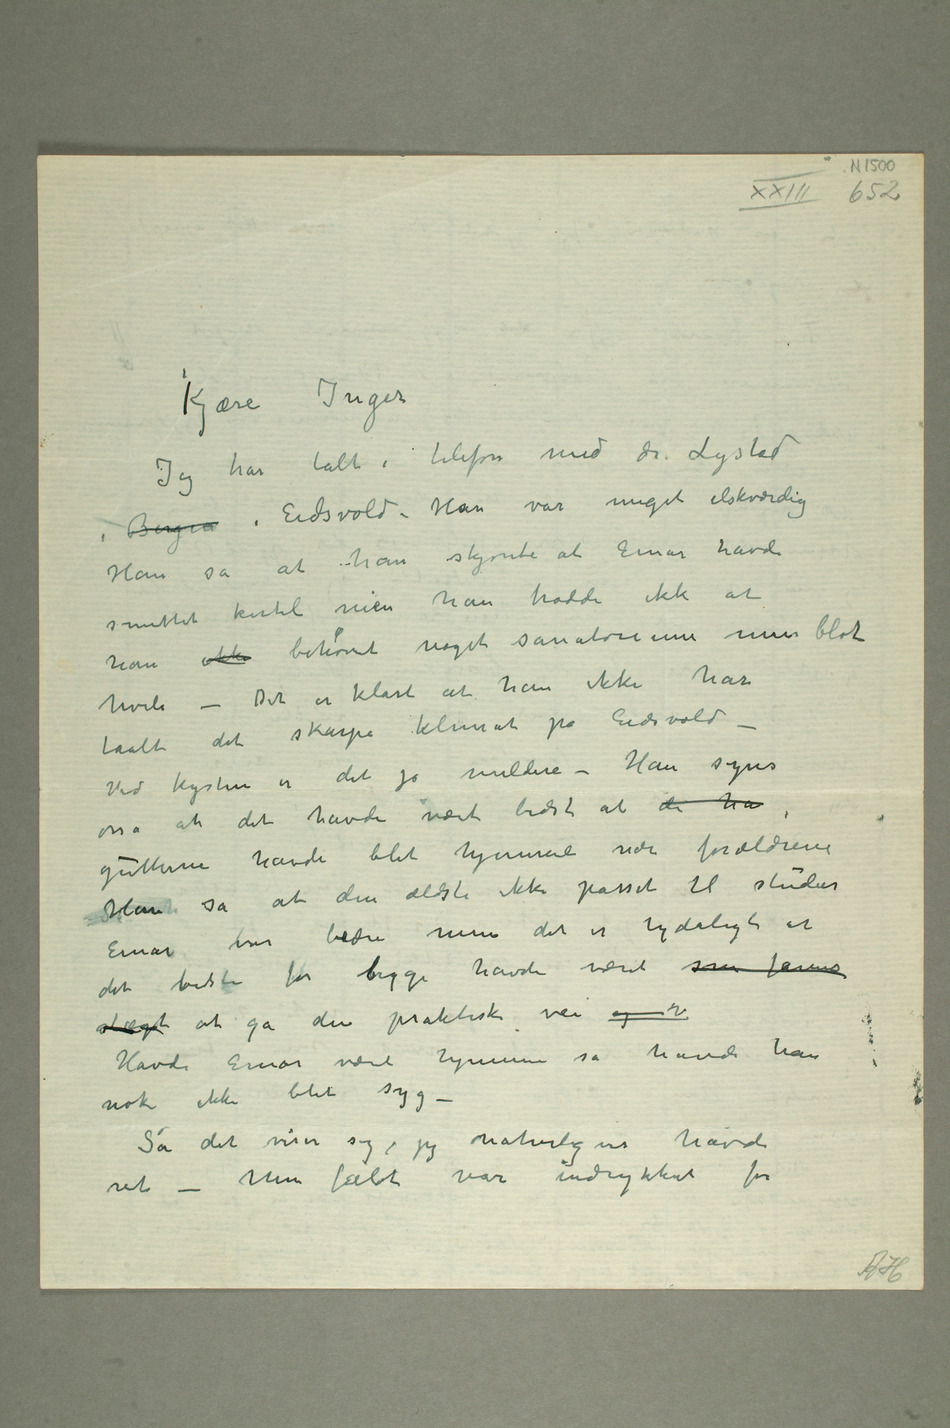 N 1500
XXIII 652
Kjære Inger
Jeg har talt i telefon med dr. Lystad
i Bergen i Eidsvold – Han var meget elskværdig
Han sa at han skjønte at Einar havde
smittet kirtel men han trodde ikke at
han ikke behøvet noget sanatorium men blot
hvile – Det er klart at han ikke har
taalt det skarpe klimat på Eidsvold –
Ved kysten er det jo mildere – Han synes
osså at det havde været bedst at de ha,
gutterne havde blet hjemme nær forældrene
Han sa at den ældste ikke passet til studier
Einar bedre men det er tydeligt at
det bedste for begge havde været
at gå den praktiske vei og
Havde Einar været hjemme så havde han
nok ikke blet syg –
Så det viser sig, jeg naturligvis havde
ret – Men fælt var indtrykket for
AH